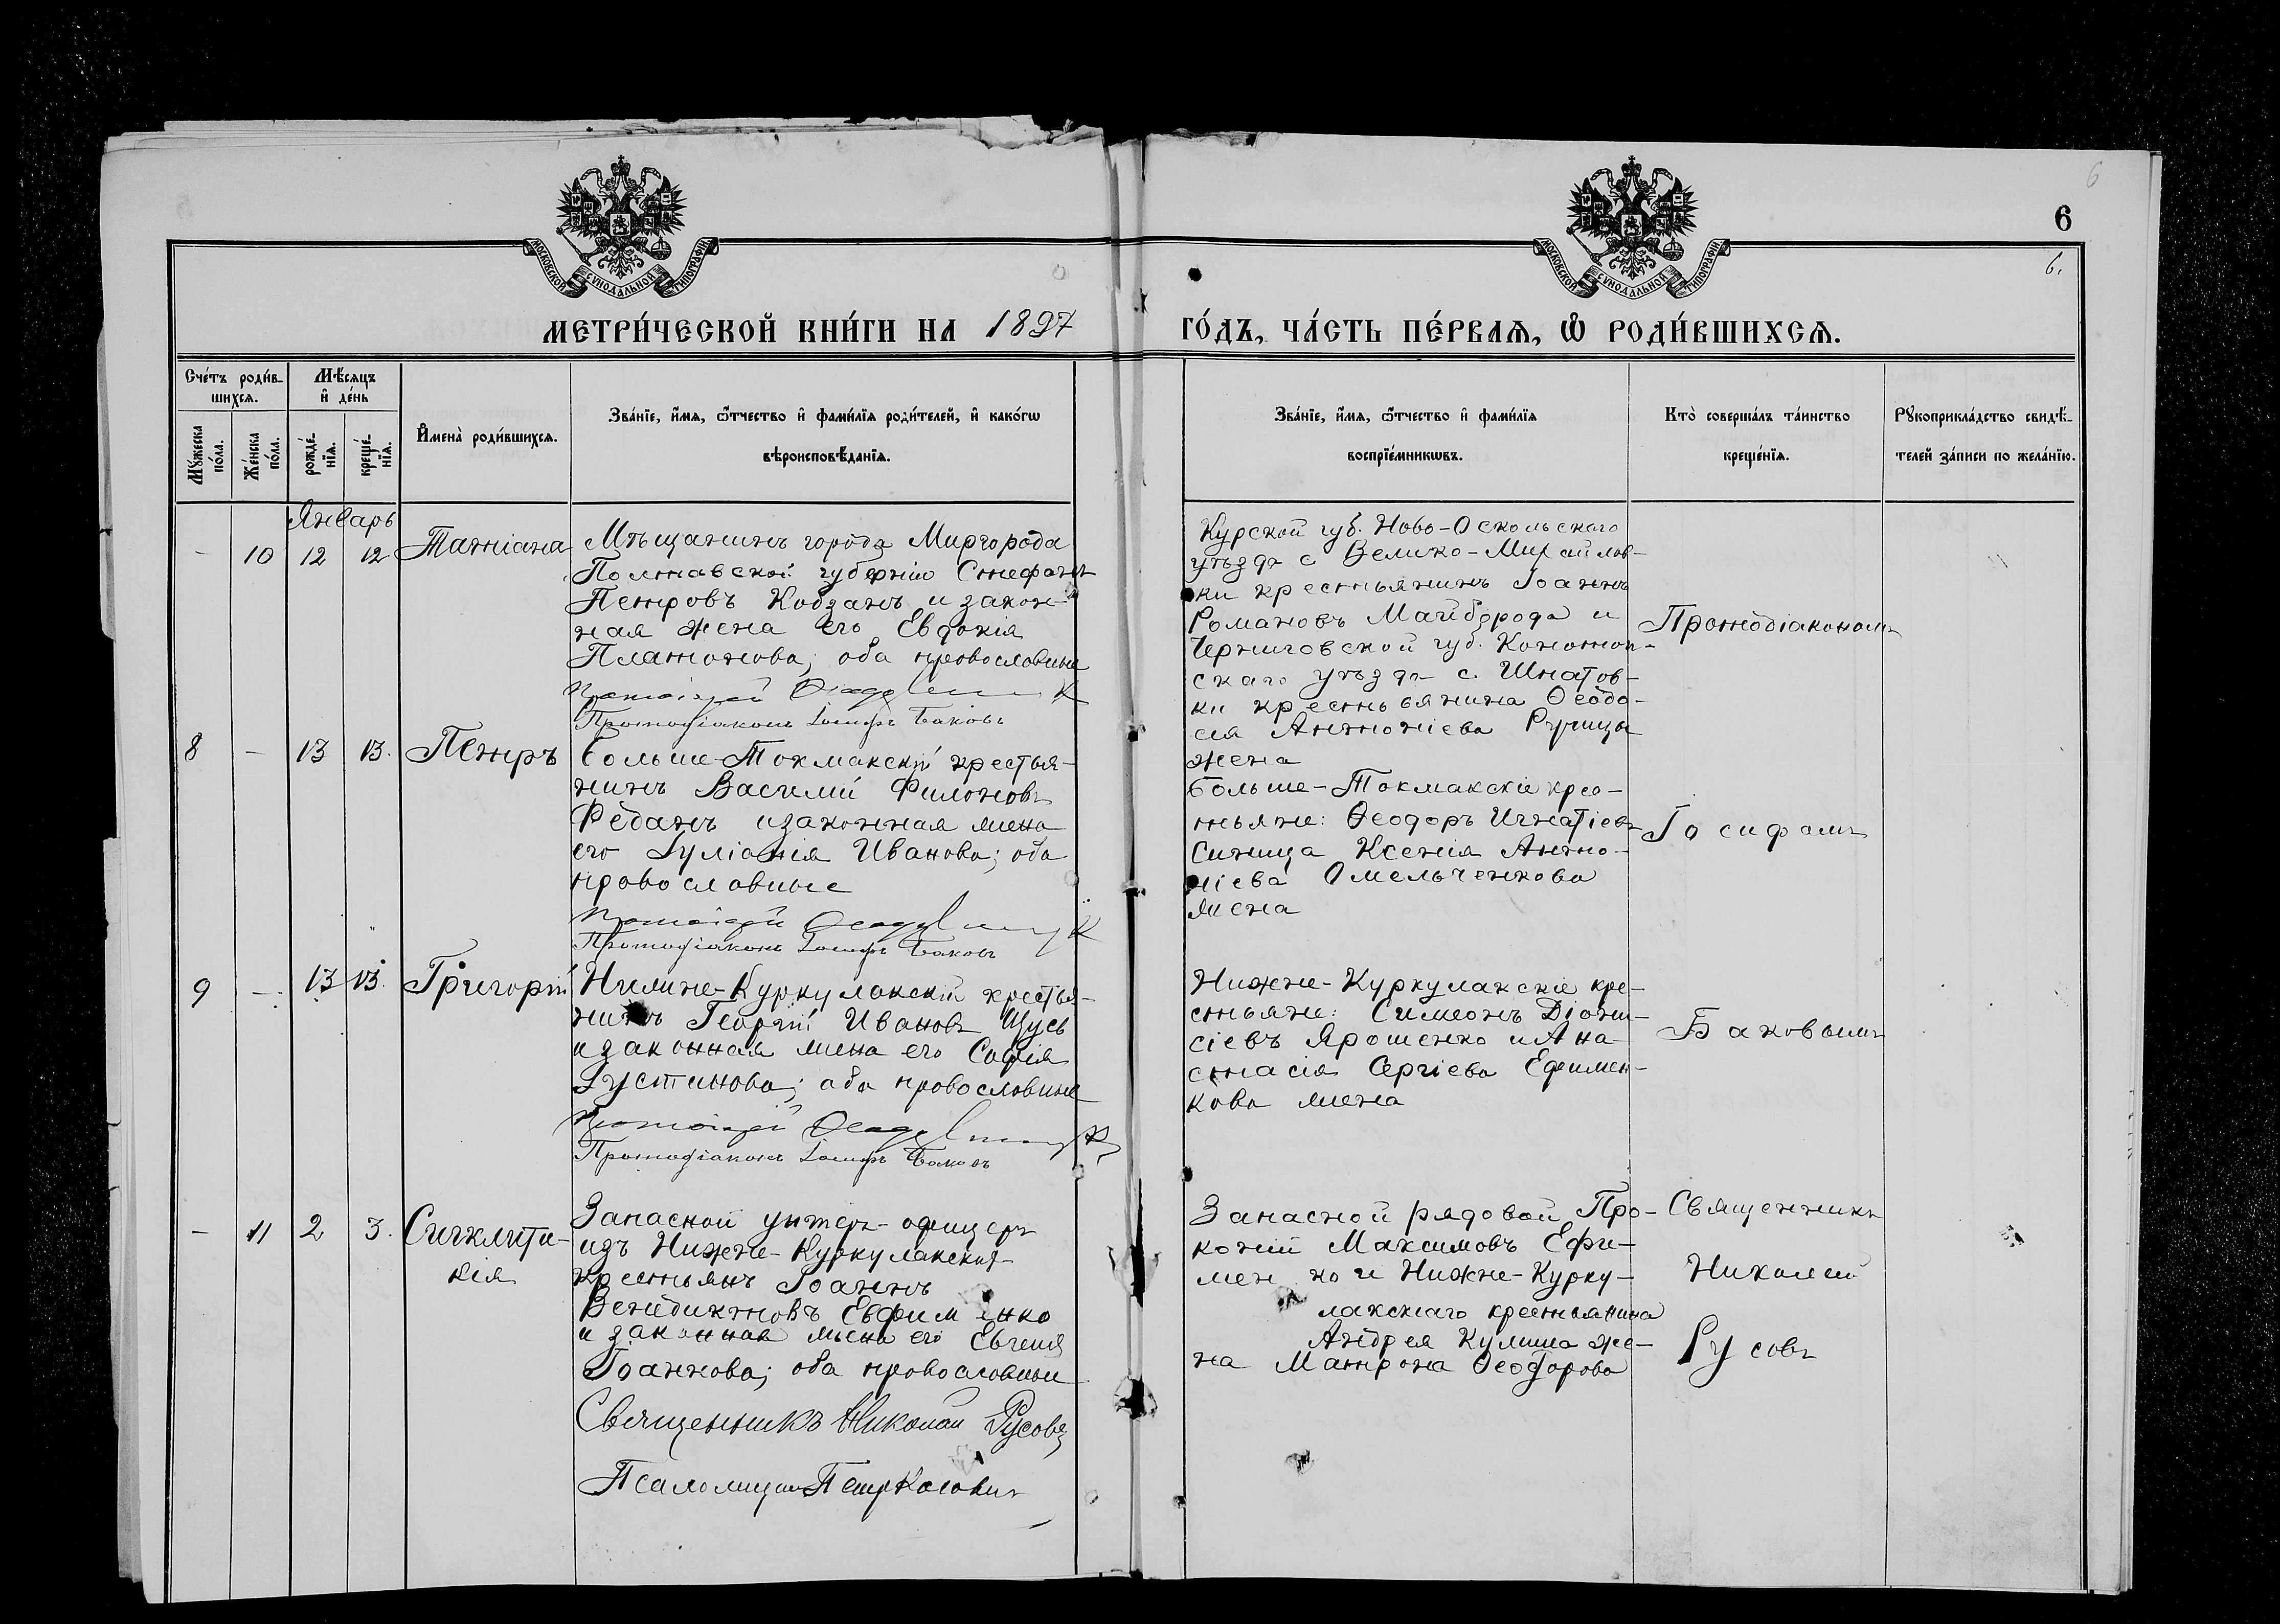 6
6
6.
МОСКОВСКОЙ СѴНОДАЛЬНОЙ ТИПОГРАФІИ
МОСКОВСКОЙ СѴНОДАЛЬНОЙ ТИПОГРАФІИ
МЕТРИ́ЧЕСКОЙ КНИ́ГИ НА 1897
ГО́ДЪ, ЧА́СТЬ ПЕ́РВАѦ, Ѽ РОДИ́ВШИХСѦ.
Сче́тъ роди́в-
шихсѧ.
Мꙋ́жеска
по́ла.
Же́нска
по́ла.
Мѣ́сѧцъ
и҆ де́нь
рожде́-
нїѧ.
креще́-
нїѧ.
И҆мена̀ роди́вшихсѧ.
Зва́нїе, и҆́мѧ, ѻ҆́тчество и҆ фами́лїѧ роди́телей, и҆ како́гѡ
вѣроисповѣ́данїѧ.
Зва́нїе, и҆́мѧ, ѻ҆́тчество и҆ фами́лїѧ
воспрїе́мникѡвъ.
Кто̀ соверша́лъ та́инство
креще́нїѧ.
Рꙋкоприкла́дство свидѣ́-
телей за́писи по жела́нїю.
Январь
- 10 12 12 Татіана
Мѣщанинъ города Миргорода
Полтавской губерніи Стефанъ
Петровъ Кобзанъ и закон-
ная жена его Евдокія
Платонова; оба православные
Протодіаконъ Іосифъ Баковъ
Курской губ. Ново-Оскольскаго
уѣзда с Велико-Михайлов-
ки крестьянинъ Іоаннъ
Романовъ Майборода и
Черниговской губ. Конотоп-
скаго уѣзда с. Шнатов-
ки крестьянина Ѳеодо-
сія Антоніева Ручицы
жена
Протодіакономъ
8 - 13 13. Петръ
Больше-Токмакскій крестья-
нинъ Василій Филоновъ
Феданъ и законная жена
его Іуліанія Иванова; оба
православные
Протодіаконъ Іосифъ Баковъ
Больше-Токмакскіе крес-
тьяне: Ѳеодоръ Игнатіевъ
Синица Ксенія Анто-
ніева Омельченкова
жена
Іосифомъ
9 - 13 13. Григорій
Нижне-Куркулакскій крестья-
нинъ Георгій Ивановъ Щусь
и законная жена его Софія
Іустинова; оба православные
Протодіаконъ Іосифъ Баковъ
Нижне-Куркулакскіе кре-
стьяне: Симеонъ Діони-
сіевъ Ярошенко и Ана-
стасія Сергіева Ефимен-
кова жена
Баковымъ
- 11 2 3. Сигклити-
кія
Запасной унтеръ-офицеръ
изъ Нижне-Куркулакскихъ
крестьянъ Іоаннъ
Венедиктовъ Евфименко
и законная жена его Евгенія
Іоаннова; оба православные
Священникъ Николай Русовъ
Псаломщикъ Петръ
Запасной рядовой Про-
копій Максимовъ Ефи-
менко и Нижне-Курку-
лакскаго крестьянина
Андрея Кулиша же-
на Матрона Ѳеодорова
Священникъ
Николай
Русовъ